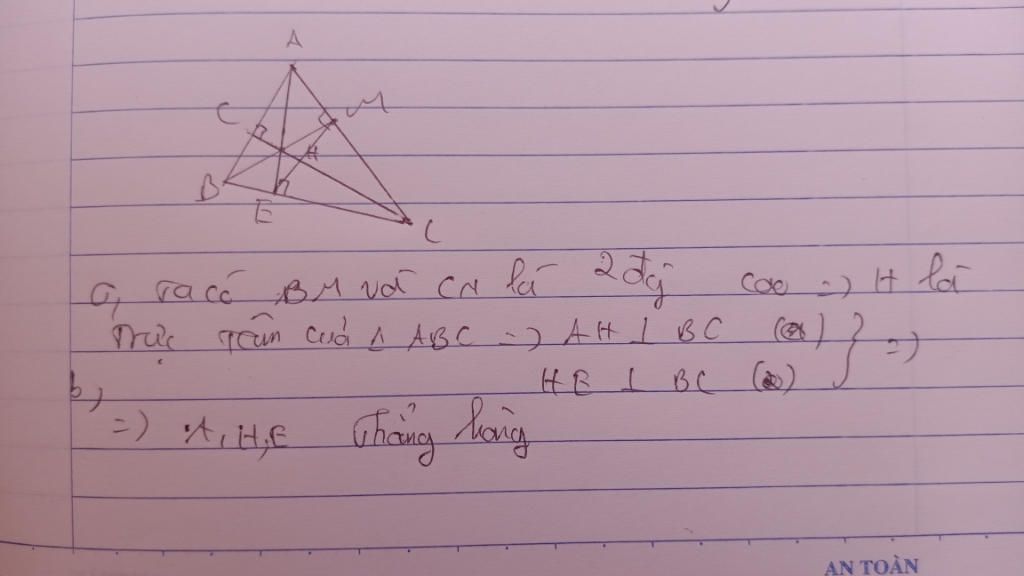 A
C
M
H
B
E
C
a, ta có BM và CN là 2 đg cao => H là
trực tâm của Δ ABC => AH ⊥ BC (1) } =>
b, HE ⊥ BC (2)
=> A, H, E thẳng hàng
AN TOÀN